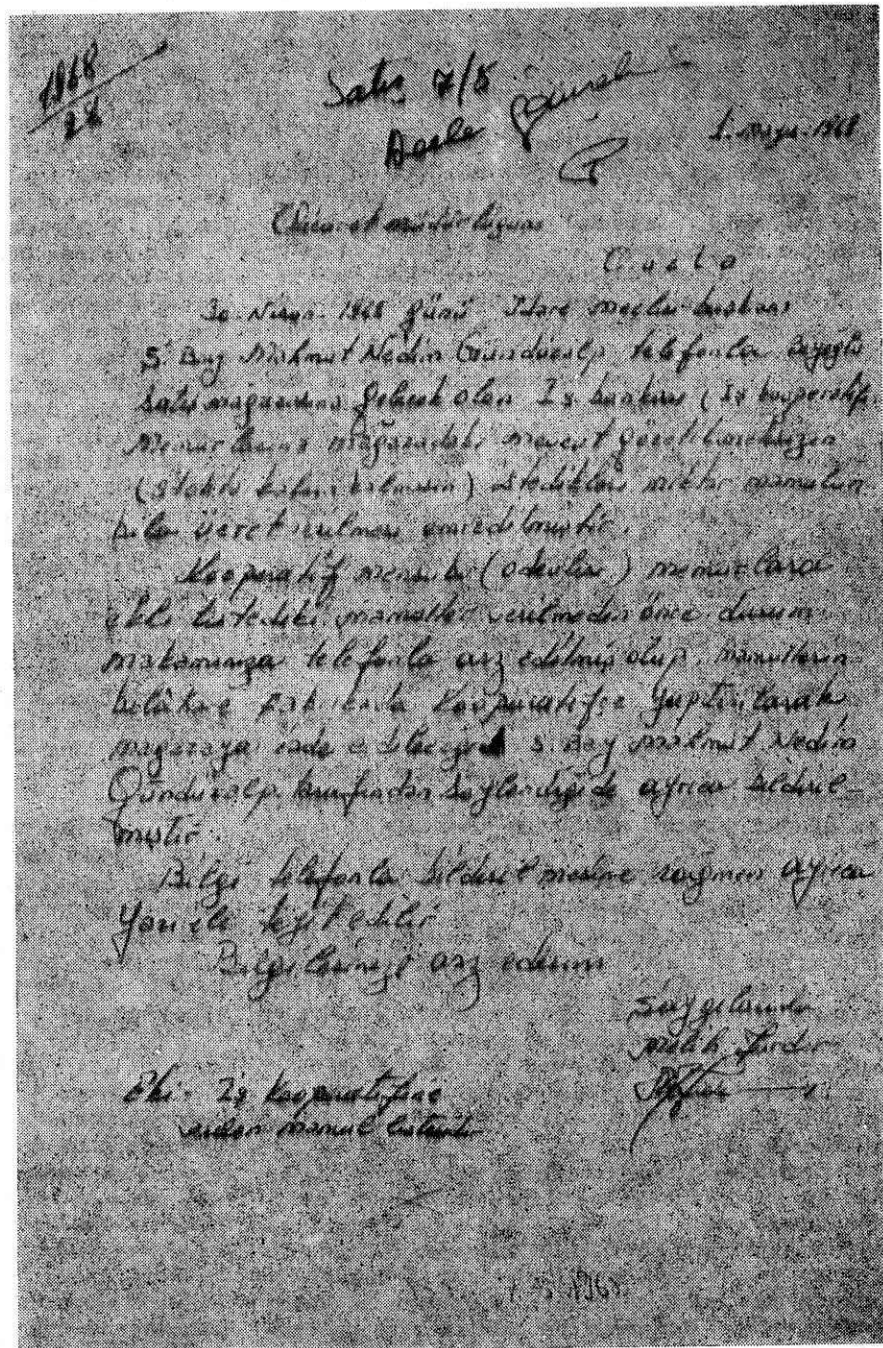 1968
28
Satış 7/5
1. Mayıs. 1968
Ticaret müdürlüğüne
30. Nisan. 1968 günü İdare meclisi başkanı
S. Bay Mahmut Nedim Gündüzalp telefonla Beyoğlu
Satış mağazasına gelecek olan İş bankası (İş kooperatifi)
Memurlarına mağazadaki mevcut
(Stokta kalan kalmasın) istedikleri miktar mamulün
bila ücret verilmesi emredilmiştir.
Kooperatif mensubu memurlara
ekli listedeki mamuller verilmeden önce durum
makamınıza telefonla arz edilmiş olup, mamullerin
bilâhare Kooperatifçe yaptırılarak
mağazaya iade edileceği S. Bay Mahmut Nedim
Gündüzalp tarafından söylendiği de ayrıca bildiril-
miştir.
Bilgi telefonla bildirilmesine rağmen ayrıca
yazı ile teyit edilir
Bilgilerinize arz ederim
Saygılarımla
Melih
Eki - İş Kooperatifine
verilen mamul listesidir
1968